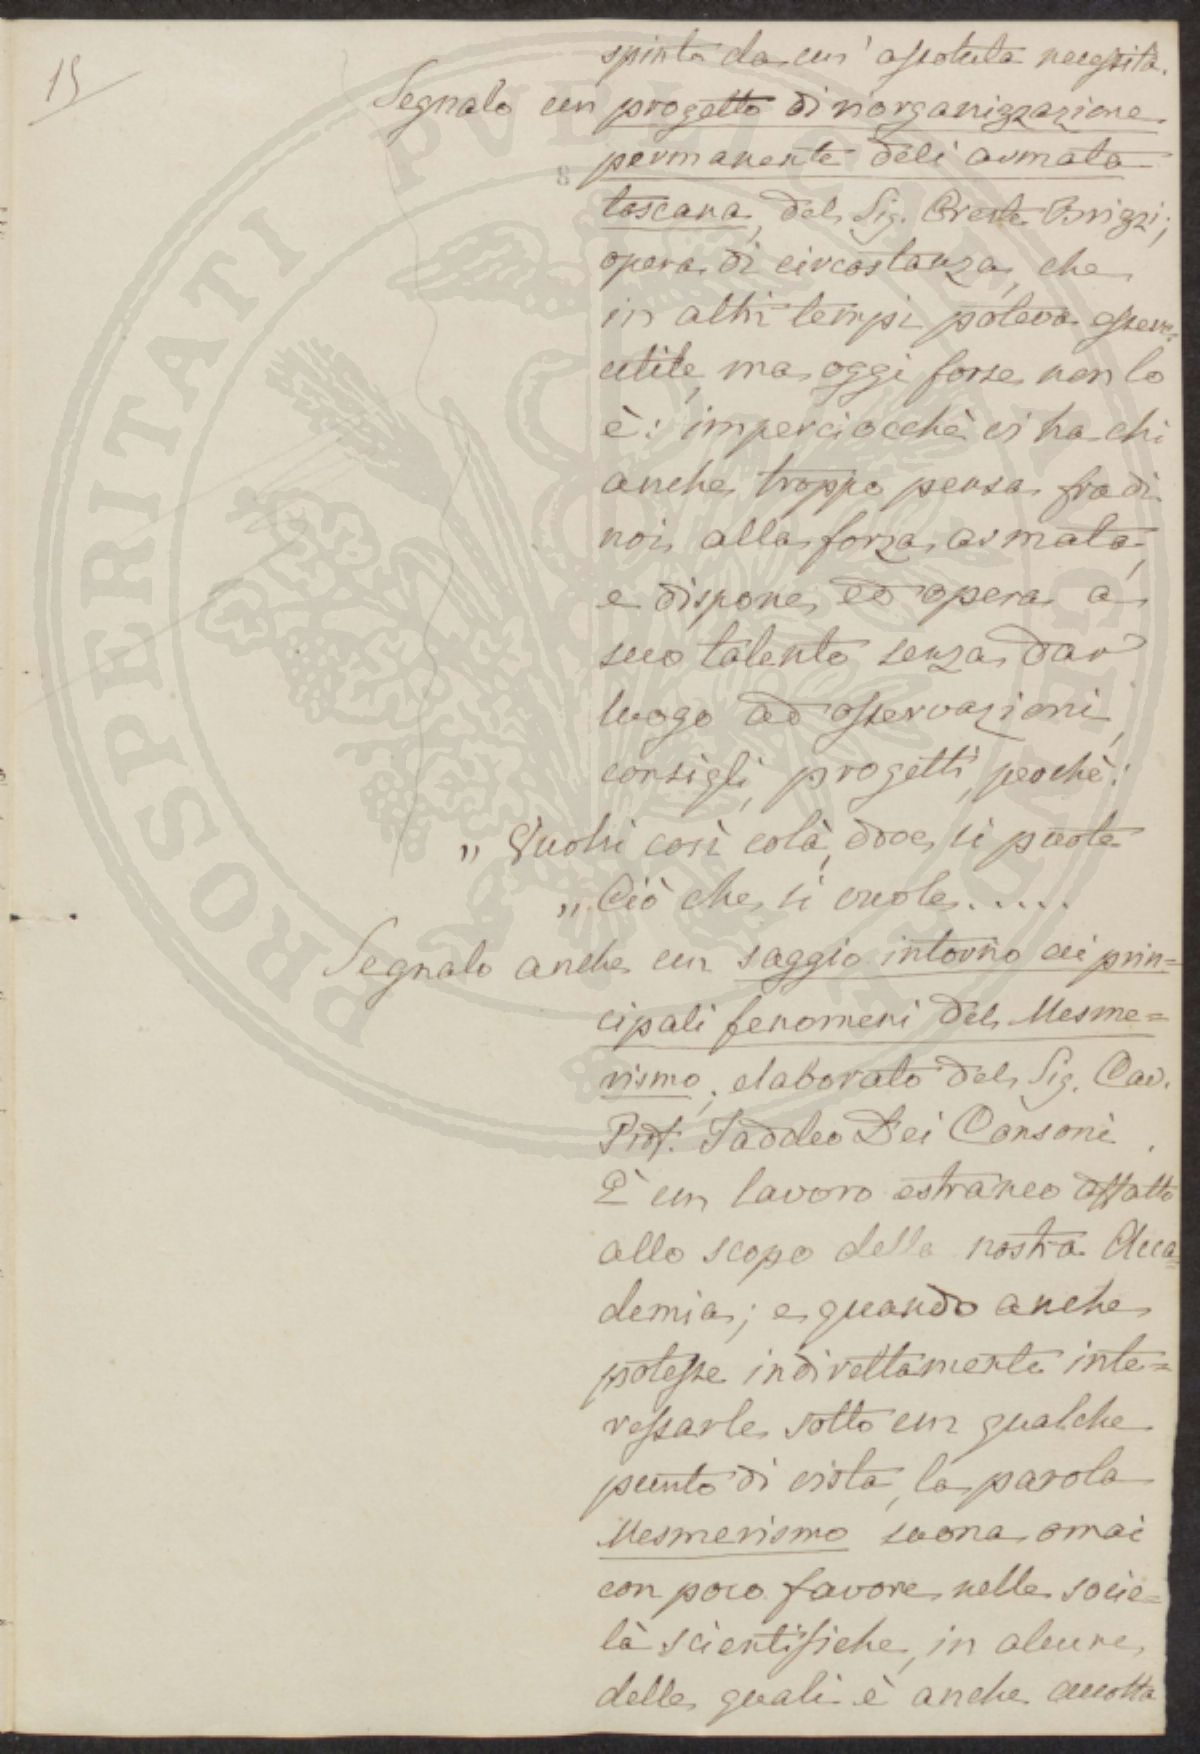 15
spinta da un' assoluta necessità.
Segnalo un progetto di riorganizzazione
permanente dell'armata
8
toscana, del Sig. Oreste Brizzi;
opera di circostanza, che
in altri tempi poteva essere
utile, ma oggi forse non lo
è: imperciocchè vi ha chi
anche troppo pensa fra di
noi alla forza armata,
e dispone, ed opera a
suo talento senza dar
luogo ad osservazioni,
consigli, progetti, perchè:
„ Vuolsi così colà, dove si puote
„ Ciò che si vuole.....
Segnalo anche un saggio intorno ai prin=
cipali fenomeni del Mesme=
rismo, elaborato del Sig. Cav.
Prof. Taddeo Dei Consoni.
È un lavoro estraneo affatto
allo scopo della nostra Acca=
demia; e quando anche
potesse indirettamente inte=
ressarle sotto un qualche
punto di vista, la parola
Mesmerismo suona omai
con poco favore nelle socie=
tà scientifiche, in alcune
delle quali è anche accolta
PROSPERITATI PVBLICAE